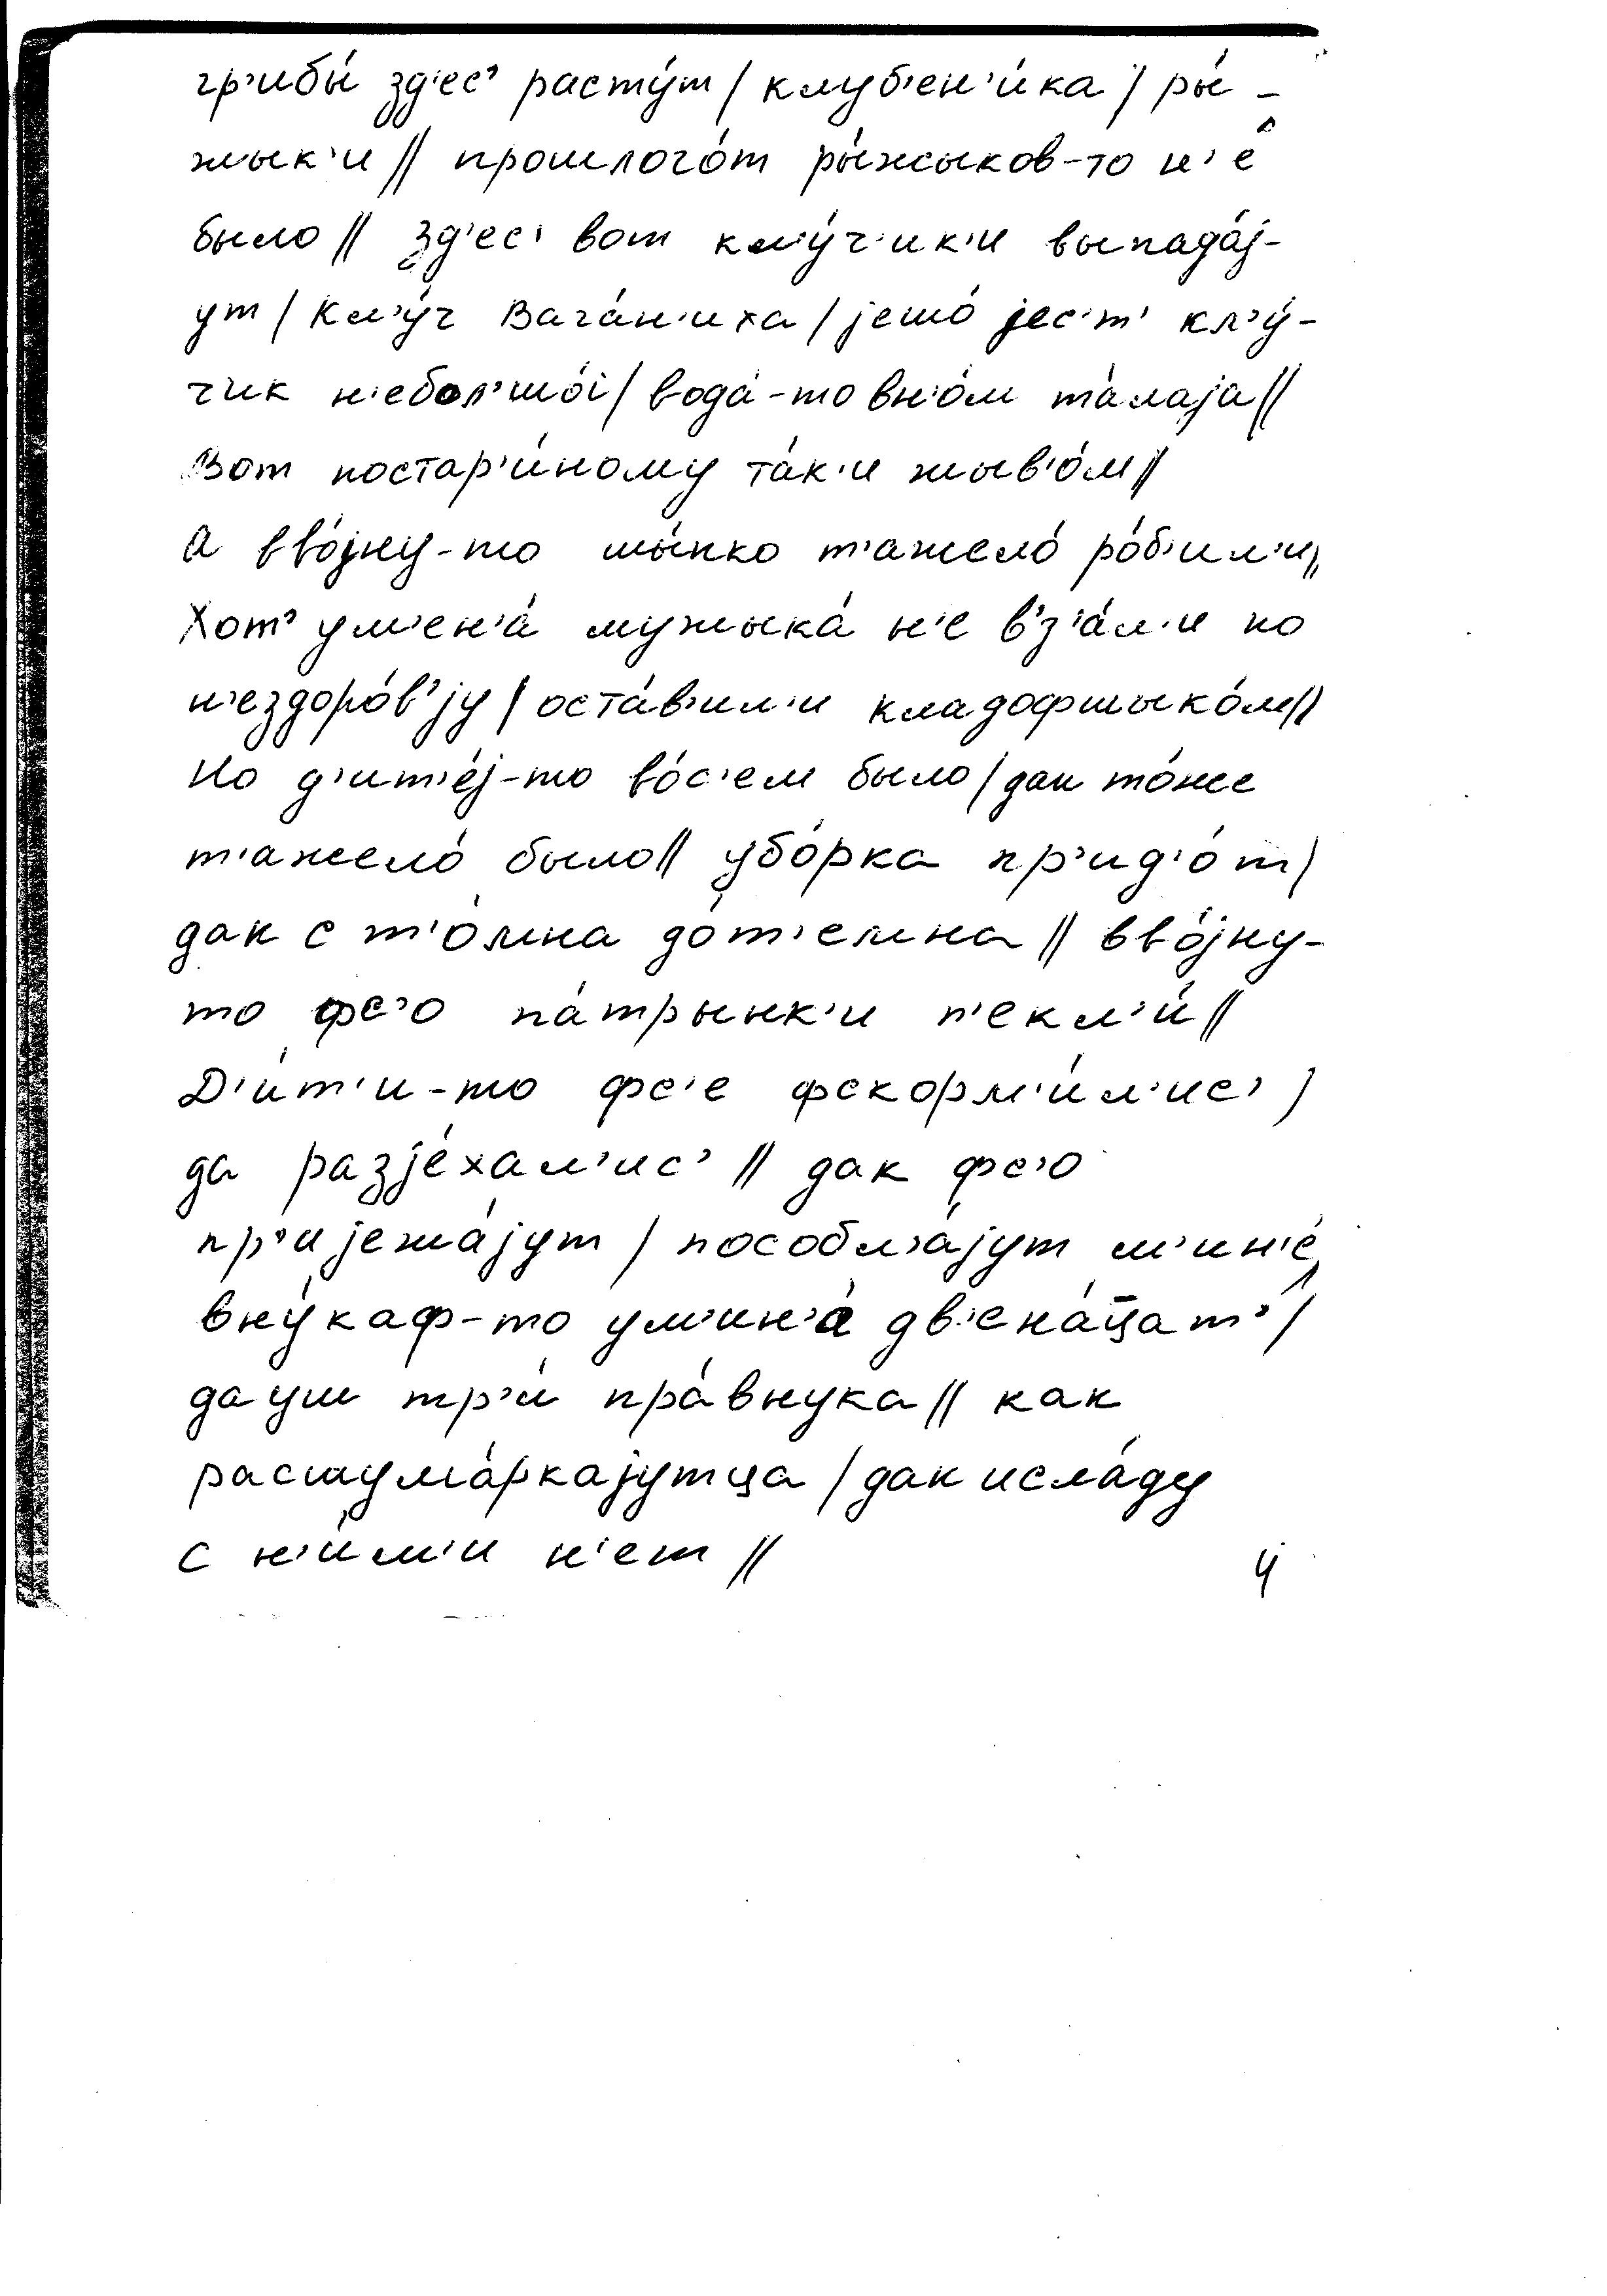 гр'ибы́ зд'ес' расту́т / клуб'ен'и́ка / ры́ -
жык'и // прошлого́т ры́жыков-то н'е́
было // зд'ес' вот кл'у́ч'ик'и выпада́j-
ут / Кл'у́ч Вага́н'иха / jешо́ jес'т' кл'у́-
чик н'ебол'шо́i / вода́-то вн'о́м та́лаjа //
Вот постар'и́ному та́к'и жыв'о́м //
А вво́jну-то шы́пко т'ажело́ ро́б'ил'и //
Хот' ум'ен'а́ мужыка́ н'е в'з'а́л'и по
н'ездоро́в'jу / оста́в'ил'и кладофшыко́м //
Но д'ит'е́j-то во́с'ем было / дак то́же
т'ажело́ было // убо́рка пр'ид'о́т /
дак с т'о́мна до́т'емна // вво́jну-
то фс'о па́трынк'и п'екл'и́ //
Д'и́т'и-то фс'е фскорм'и́л'ис' /
да разjе́хал'ис' // дак фс'о
пр'иjежа́jут / пособл'а́jут м'ин'е́
вну́каф-то ум'ин'а́ дв'ена́цат' /
дауш тр'и́ пра́внука // как
расшума́ркаjутца / дак исла́ду
с н'и́м'и н'ет //
4